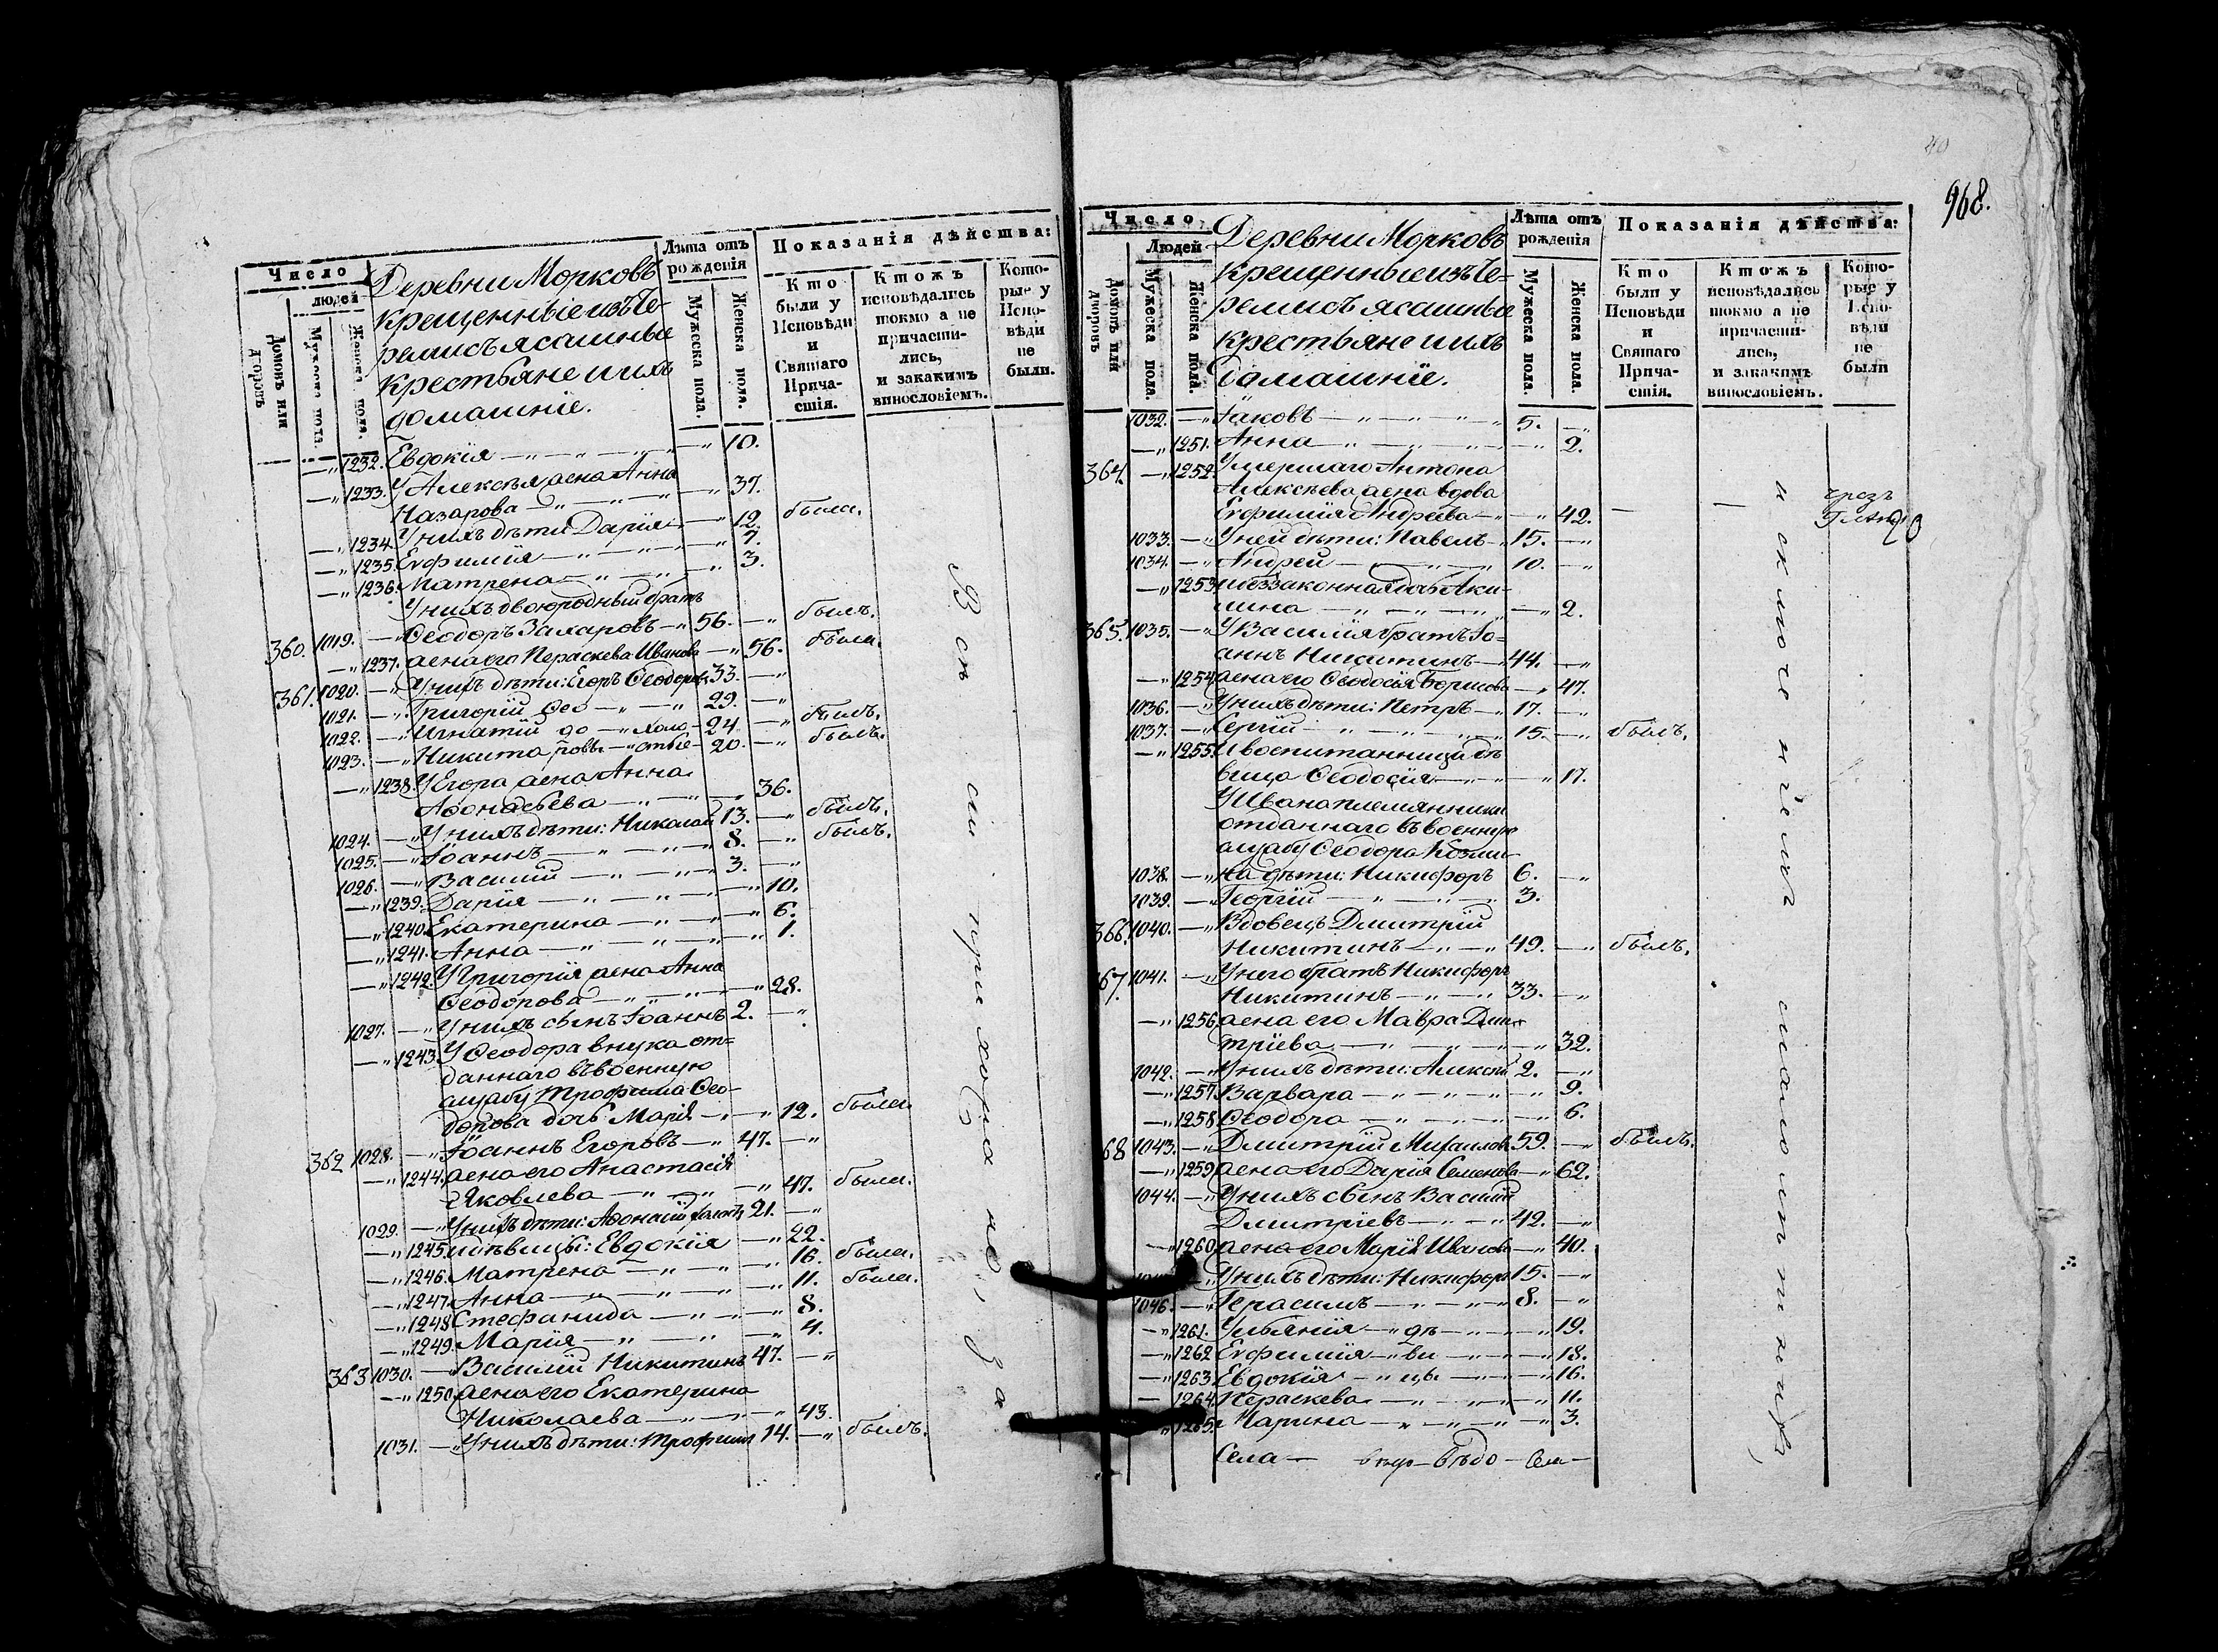 Число
людей
Домовъ или дворовъ
Мужеска пола.
Женска пола.
Деревни Морковъ
крещенные изъ Че-
ремисъ ясашные
крестьяне и ихъ
домашніе.
Лѣта отъ рожденія
Мужеска пола.
Женска пола.
Показанія дѣйства:
Кто были у Исповѣди и Святаго Прича-стія.
Ктожъ исповѣдались токмо а не причасти-лись, и закакимъ винословіемъ.
Кото-рые у Испо-вѣди не были.
—„ 1232. Евдокія —„ 10.
—„ 1233. У Алексѣя жена Анна
Назарова —„ 37. была.
—„ 1234. У нихъ дѣти Дарія —„ 12.
—„ 1235. Евфимія —„ 7.
—„ 1236. Матрена —„ 3.
У нихъ двоюродный братъ
360. 1019. —„ Ѳеодоръ Захаровъ 56. —„ былъ.
—„ 1237. жена его Параскева Иванова —„ 56. была.
361. 1020. —„ У нихъ дѣти: Егоръ Ѳеодоровъ 33. —„
1021. —„ Григорій Ѳео —„ 29. —„
1022. —„ Игнатій до —„ холо- 24 —„ былъ.
1023. —„ Никита ровы —„ стые 20. —„ былъ.
—„ 1238. У Егора жена Анна
Аѳонасьева —„ 36.
1024. —„ У нихъ дѣти: Николай 13. —„ былъ.
1025. —„ Іоаннъ 8. —„ былъ.
1026. —„ Василій 3. —„
—„ 1239. Дарія —„ 10.
—„ 1240. Екатерина —„ 6.
—„ 1241. Анна —„ 1.
—„ 1242. У Григорія жена Анна
Ѳеодорова —„ 28.
1027. —„ У нихъ сынъ Іоаннъ 2. —„
—„ 1243. У Ѳеодора внука от-
даннаго въ военную
службу Трофима Ѳео-
дорова дочь Марія —„ 12. была.
362 1028. —„ Іоаннъ Егоровъ 47. —„
—„ 1244. жена его Анастасія
Яковлева —„ 47. была.
1029. —„ У нихъ дѣти: Аѳонасій холостъ 21. —„
—„ 1245. и дѣвицы: Евдокія —„ 22.
—„ 1246. Матрена —„ 16. была.
—„ 1247. Анна —„ 11. была.
—„ 1248. Стефанида —„ 8.
—„ 1249. Марія —„ 4.
363 1030. —„ Василій Никитинъ 47. —„
—„ 1250. жена его Екатерина
Николаева —„ 43.
1031. —„ У нихъ дѣти: Трофимъ 14. —„ былъ.
Всѣ сіи прихожане, за
40
968.
Число
Людей
Домовъ или дворовъ
Мужеска пола.
Женска пола.
Деревни Морковъ
крещенные изъ Че-
ремисъ ясашные
крестьяне и ихъ
домашніе.
Лѣта отъ рожденія
Мужеска пола.
Женска пола.
Показанія дѣйства:
Кто были у Исповѣди и Святаго Прича-стія.
Ктожъ исповѣдались токмо а не причасти-лись, и закакимъ винословіемъ.
Кото-рые у Испо-вѣди не были
1032. —„ Іаковъ 5. —„
—„ 1251. Анна —„ 2.
364. —„ 1252. Умершаго Антона
Алексѣева жена вдова
Евфимія Андреева —„ 42. — —
1033. —„ У ней дѣти: Павелъ 15. —„
1034. —„ Андрей 10. —„
—„ 1253. и беззаконная дочь Аки-
лина —„ 2.
365. 1035. —„ У Василія братъ Іо-
аннъ Никитинъ 44. —„
—„ 1254. жена его Ѳеодосія Борисова —„ 47.
1036. —„ У нихъ дѣти: Петръ 17. —„
1037. —„ Сергій 15. —„ былъ.
—„ 1255. И воспитанница дѣ-
вица Ѳеодосія —„ 17.
У Ивана племянника
отданнаго въ военную
службу Ѳеодора Козми-
1038. —„ на дѣти: Никифоръ 6. —„
1039. —„ Георгій 3.
366. 1040. —„ Вдовецъ Дмитрій
Никитинъ 49. —„ былъ.
67. 1041. —„ У него братъ Никифоръ
Никитинъ 33. —„
—„ 1256. жена его Мавра Дми-
тріева —„ 32.
1042. —„ У нихъ дѣти: Алексѣй 2. —„
—„ 1257. Варвара —„ 9.
—„ 1258. Ѳеодора —„ 6.
68 1043. —„ Дмитрій Михаиловъ 59. —„ былъ.
—„ 1259. жена его Дарія Семенова —„ 62.
1044. —„ У нихъ сынъ Василій
Дмитріевъ 42. —„
—„ 1260. жена его Марія Иванова —„ 40.
—„ У нихъ дѣти: Никифоръ 15. —„
1046. —„ Герасимъ 8. —„
—„ 1261. Ульянія —„ дѣ —„ 19.
—„ 1262. Евфимія —„ ви —„ 18.
—„ 1263. Евдокія —„ цы —„ 16.
— 1264. Параскева —„ 11.
1265. Марина —„ 3.
исключеніемъ
чрезъ
Села —